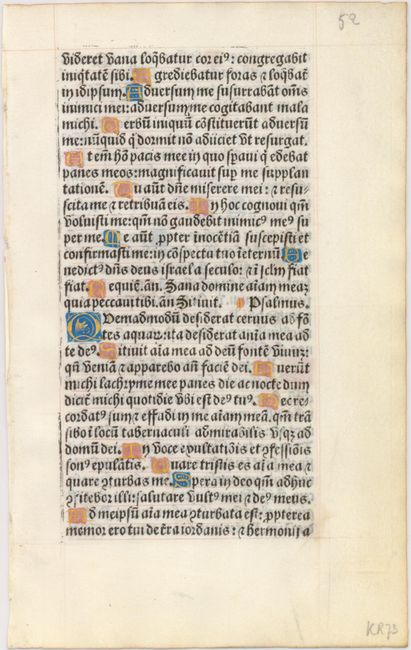 52
videret vana loq̄batur cor eiꝰ: congregabit
iniq̄tatē sibi. E grediebatur foras ⁊ loq̄bat᷑
in idipsum. A duersum me susurrabāt om̄s
inimici mei: aduersum me cogitabant mala
michi. U erbū iniquū cōstituerūt aduersū
me: nūquid q̇ dormit nō adiiciet vt resurgat.
E t em̄ hō pacis mee in quo sꝑaui q̇ edebat
panes meos: magnificauit sup me supplan
tationē. T u aūt dn̄e miserere mei: ⁊ resu-
scita me ⁊ retribuā eis. I n hoc cognoui qm̄
voluisti me: qm̄ nō gaudebit inimicꝰ meꝰ su
per me. M e aūt ꝓpter inocētiā suscepisti et
confirmasti me: in cōspectu tuo ī eternū. B e
nedictꝰ dn̄s deus israel a seculo: ⁊ ī sclm̄ fiat
fiat. R equiē. añ. Sana domine aīam meā
quia peccaui tibi. añ Sitiuit. Psalmus.
Q Uemadmodū desiderat ceruus ad fō
tes aquaꝝ: ita desiderat anīa mea ad
te deꝰ. S itiuit aīa mea ad deū fontē viuū:
qn̄ veniā ⁊ apparebo añ faciē dei. F uerūt
michi lachryme mee panes die ac nocte dum
dicit᷑ michi quotidie vbi est deꝰ tuꝰ. H ec re-
cordatꝰ sum ⁊ effudi in me aīam meā. qm̄ trā
sibo ī locū tabernaculi admirabilis vsqꝫ ad
domū dei. I n voce exultatiōis et ꝯfessiōis
sonꝰ epulātis. Q uare tristis es aīa mea ⁊
quare ꝯturbas me. S pera in deo qm̄ adhuc
ꝯfitebor illi: salutare vultꝰ mei ⁊ deꝰ meus.
A d meipsū aīa mea ꝯturbata est: ꝓpterea
memor ero tui de t̄ra iordanis: ⁊ hermonij a
KR73